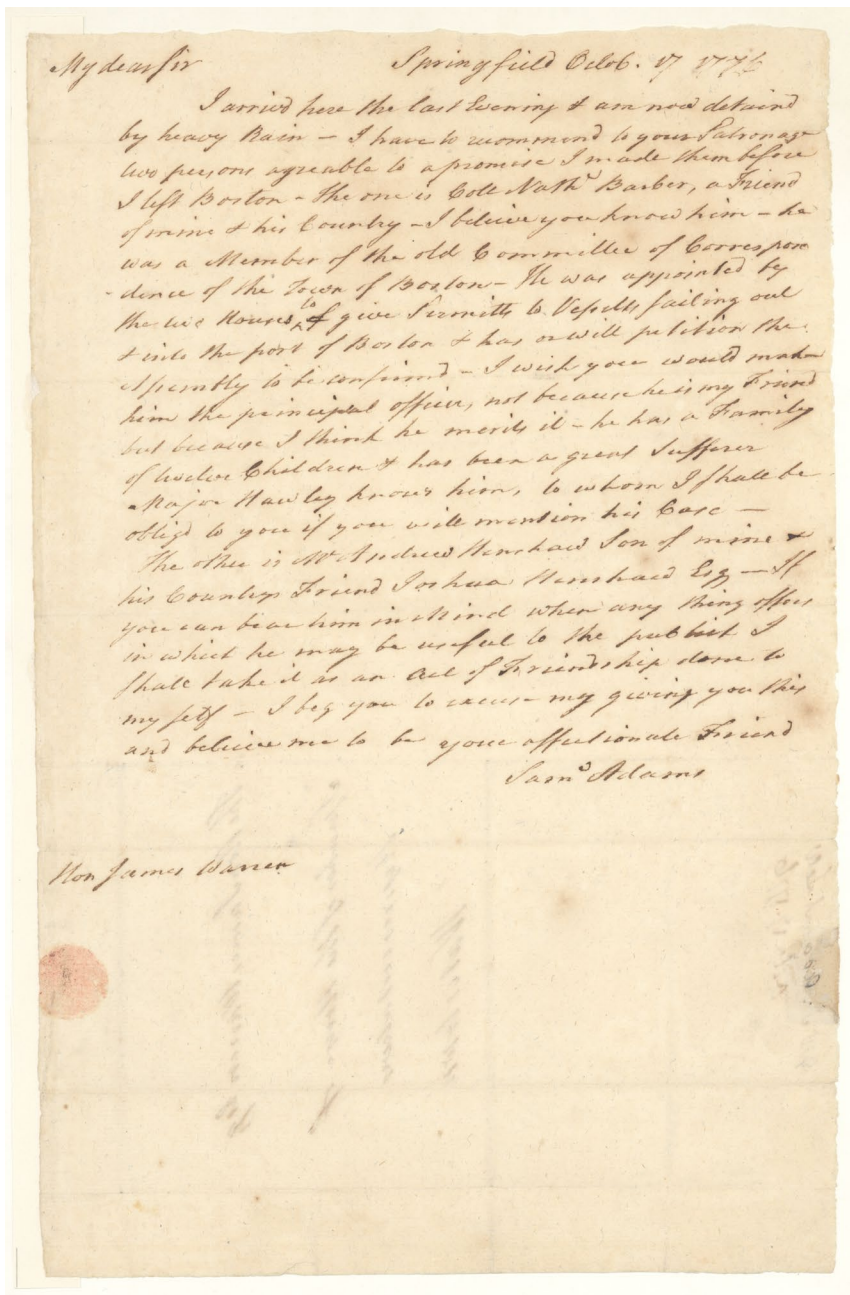 My dear Sir Springfield Octob. 17 1776
I arrivd here the last Evening & am now detaind
by heavy Rain - I have to recommend to your Patronage
two persons agreable to a promise I made them before
I left Boston - The one is Coll Nathl Barber, a Friend
of mine & his Country - I believe you know him - he
was a Member of the old Committee of Correspon
-dence of the Town of Boston - He was appointed by
the two Houses to give Permitts to Vessells sailing out
& into the port of Boston & has or will petition the
Assembly to be confirmd - I wish you would make
him the principal officer, not because he is my Friend
but because I think he merits it - he has a Family
of twelve Children & has been a great Sufferer
Major Hawley knows him, to whom I shall be
obligd to you if you will mention his Case -
The other is Mr Andrew Henshaw Son of mine &
his Countrys Friend Joshua Henshaw Esq - If
you can bear him in Mind when any thing offers
in which he may be useful to the publick I
shall take it as an Act of Friendship done to
my self - I beg you to excuse my giving you this
and believe me to be your affectionate Friend
Saml Adams
Hon James Warren